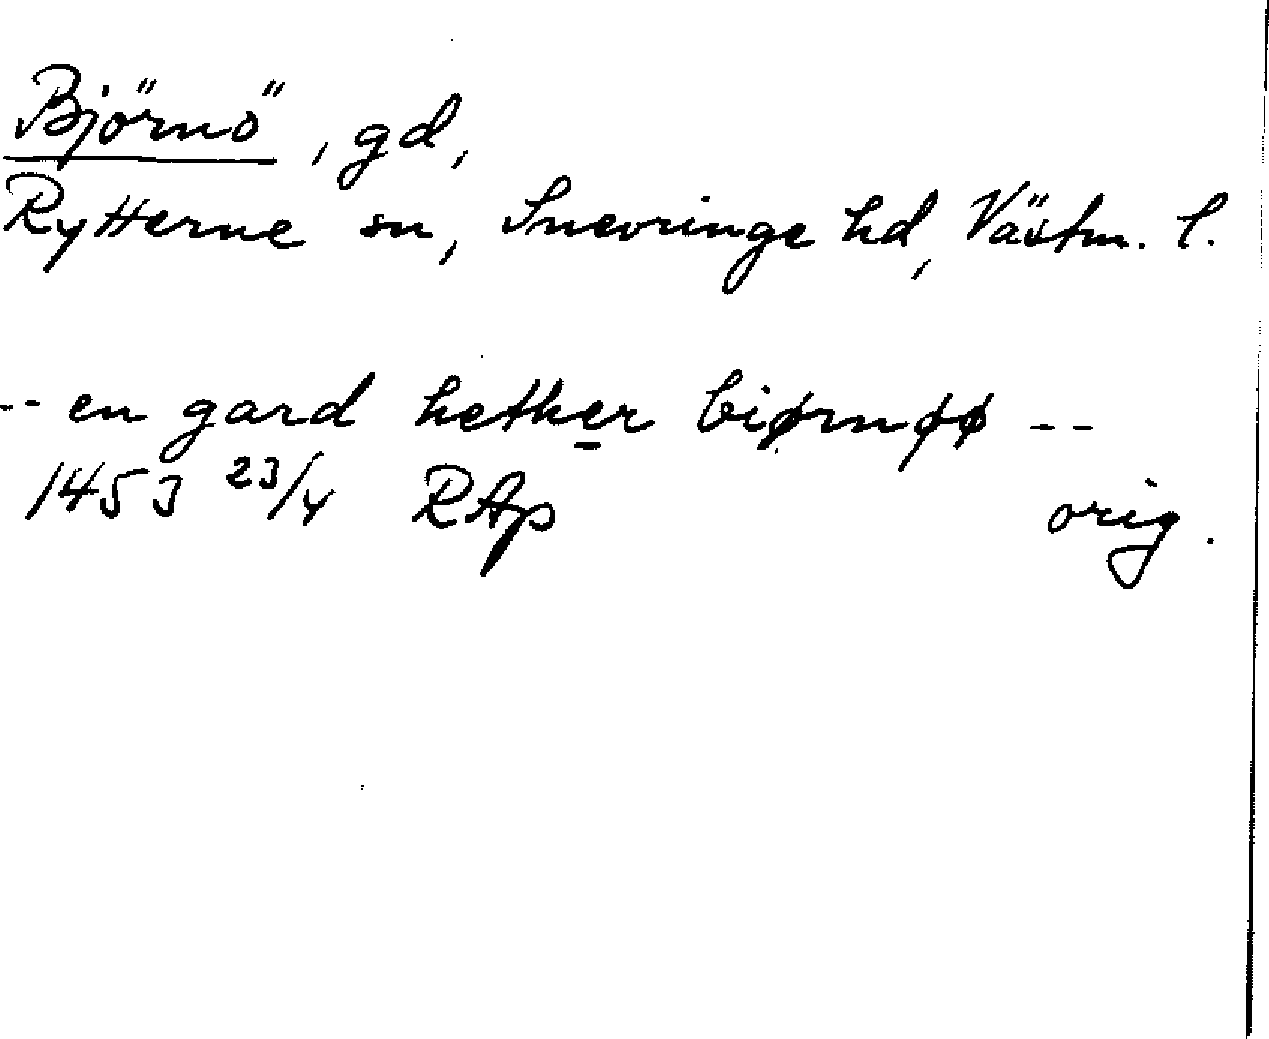 Björnö, gd,
Rytterne sn, Snevringe hd, Västm. l.
-- en gard hether biørnøø --
1453 23/4 RAp orig.